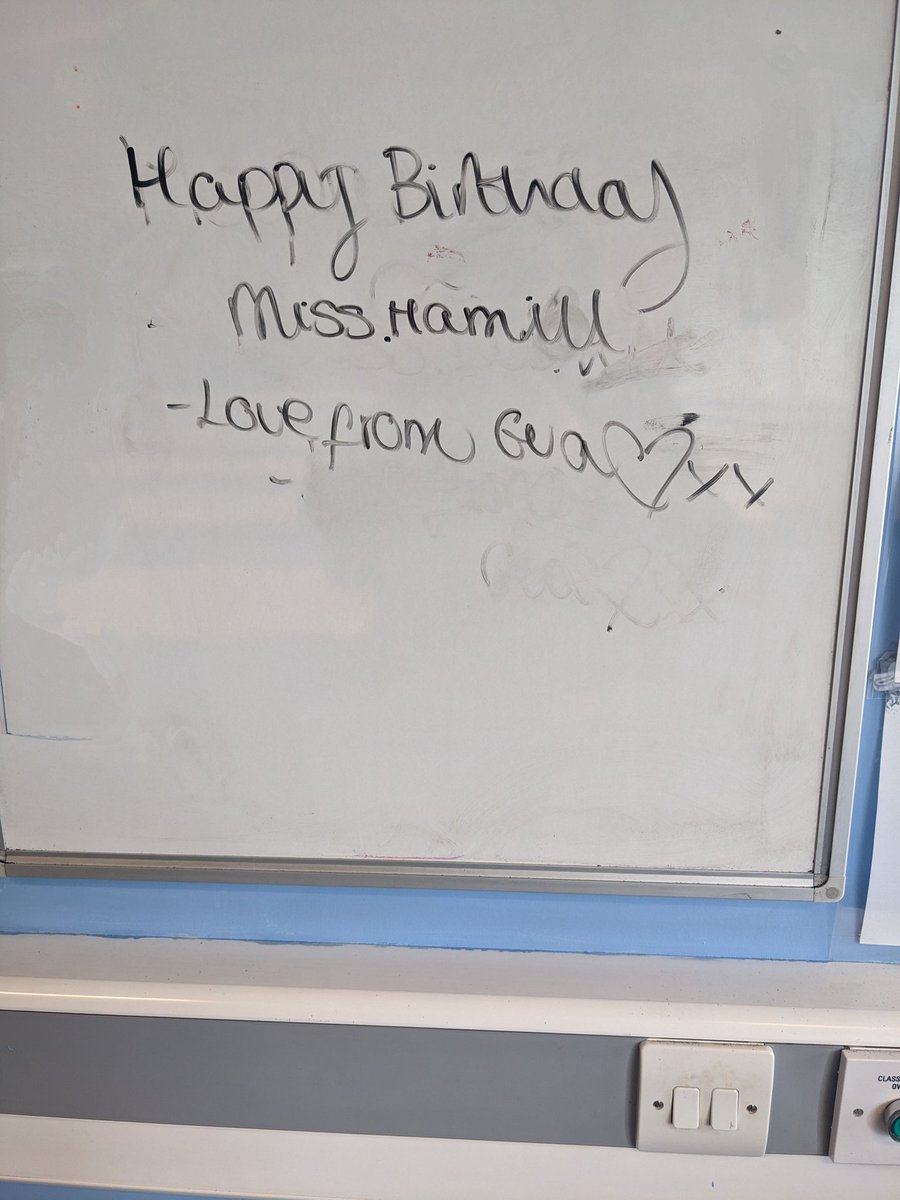 Happy Birthday
Miss. Hamill
-Love from Eva♡xx
CLASS